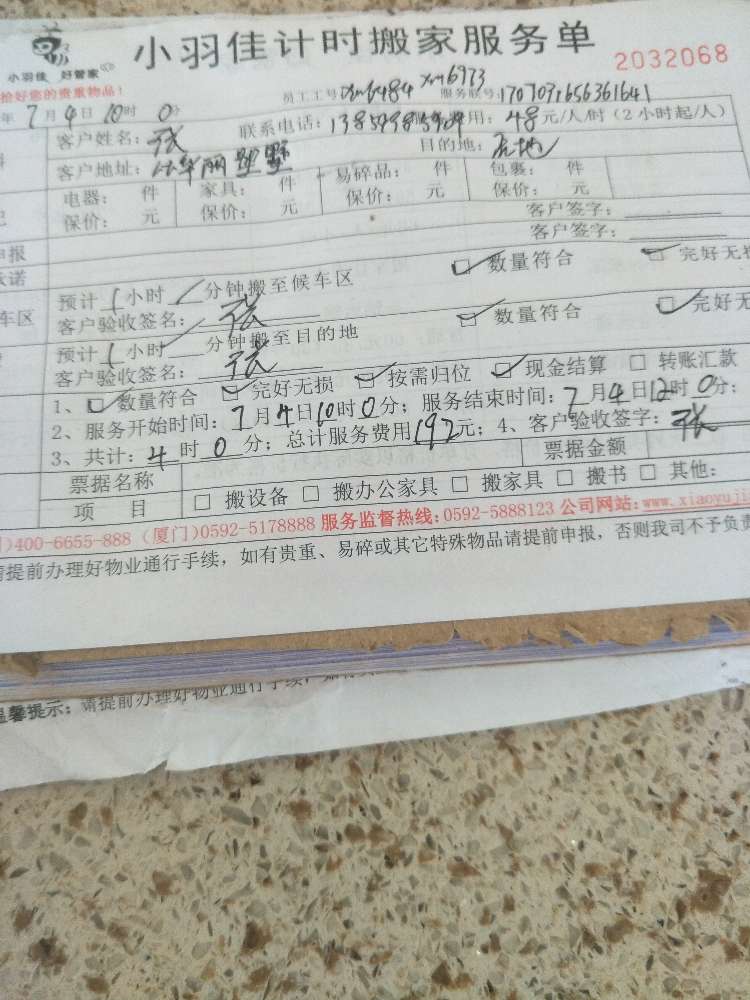 小羽佳计时搬家服务单
2032068
小羽佳 好管家
拾好您的贵重物品!
员工工号 xm6484 xm6973 服务联号:1707031656361641
年7月4日10时0分
客户姓名:张 联系电话: 用:48元/人/时(2小时起/人)
客户地址: 华丽墅 目的地:
电器: 件 家具: 件 易碎品: 件 包裹: 件
保价: 元 保价: 元 保价: 元 保价: 元
客户签字:
申报 客户签字:
承诺
预计1小时 分钟搬至候车区 数量符合 完好无损
车区 客户验收签名:张
预计1小时 分钟搬至目的地 数量符合 完好无
客户验收签名:张
1、 数量符合 完好无损 按需归位 现金结算 转账汇款
2、服务开始时间:7月4日10时0分;服务结束时间:7月4日12时0分;
3、共计:4时0分;总计服务费用192元;4、客户验收签字:张
票据名称 票据金额
项 目 搬设备 搬办公家具 搬家具 搬书 其他:
)400-6655-888 (厦门)0592-5178888 服务监督热线:0592-5888123 公司网站:www.xiaoyuji
请提前办理好物业通行手续,如有贵重、易碎或其它特殊物品请提前申报,否则我司不予负责
温馨提示:请提前办理好物业通行手续,如有